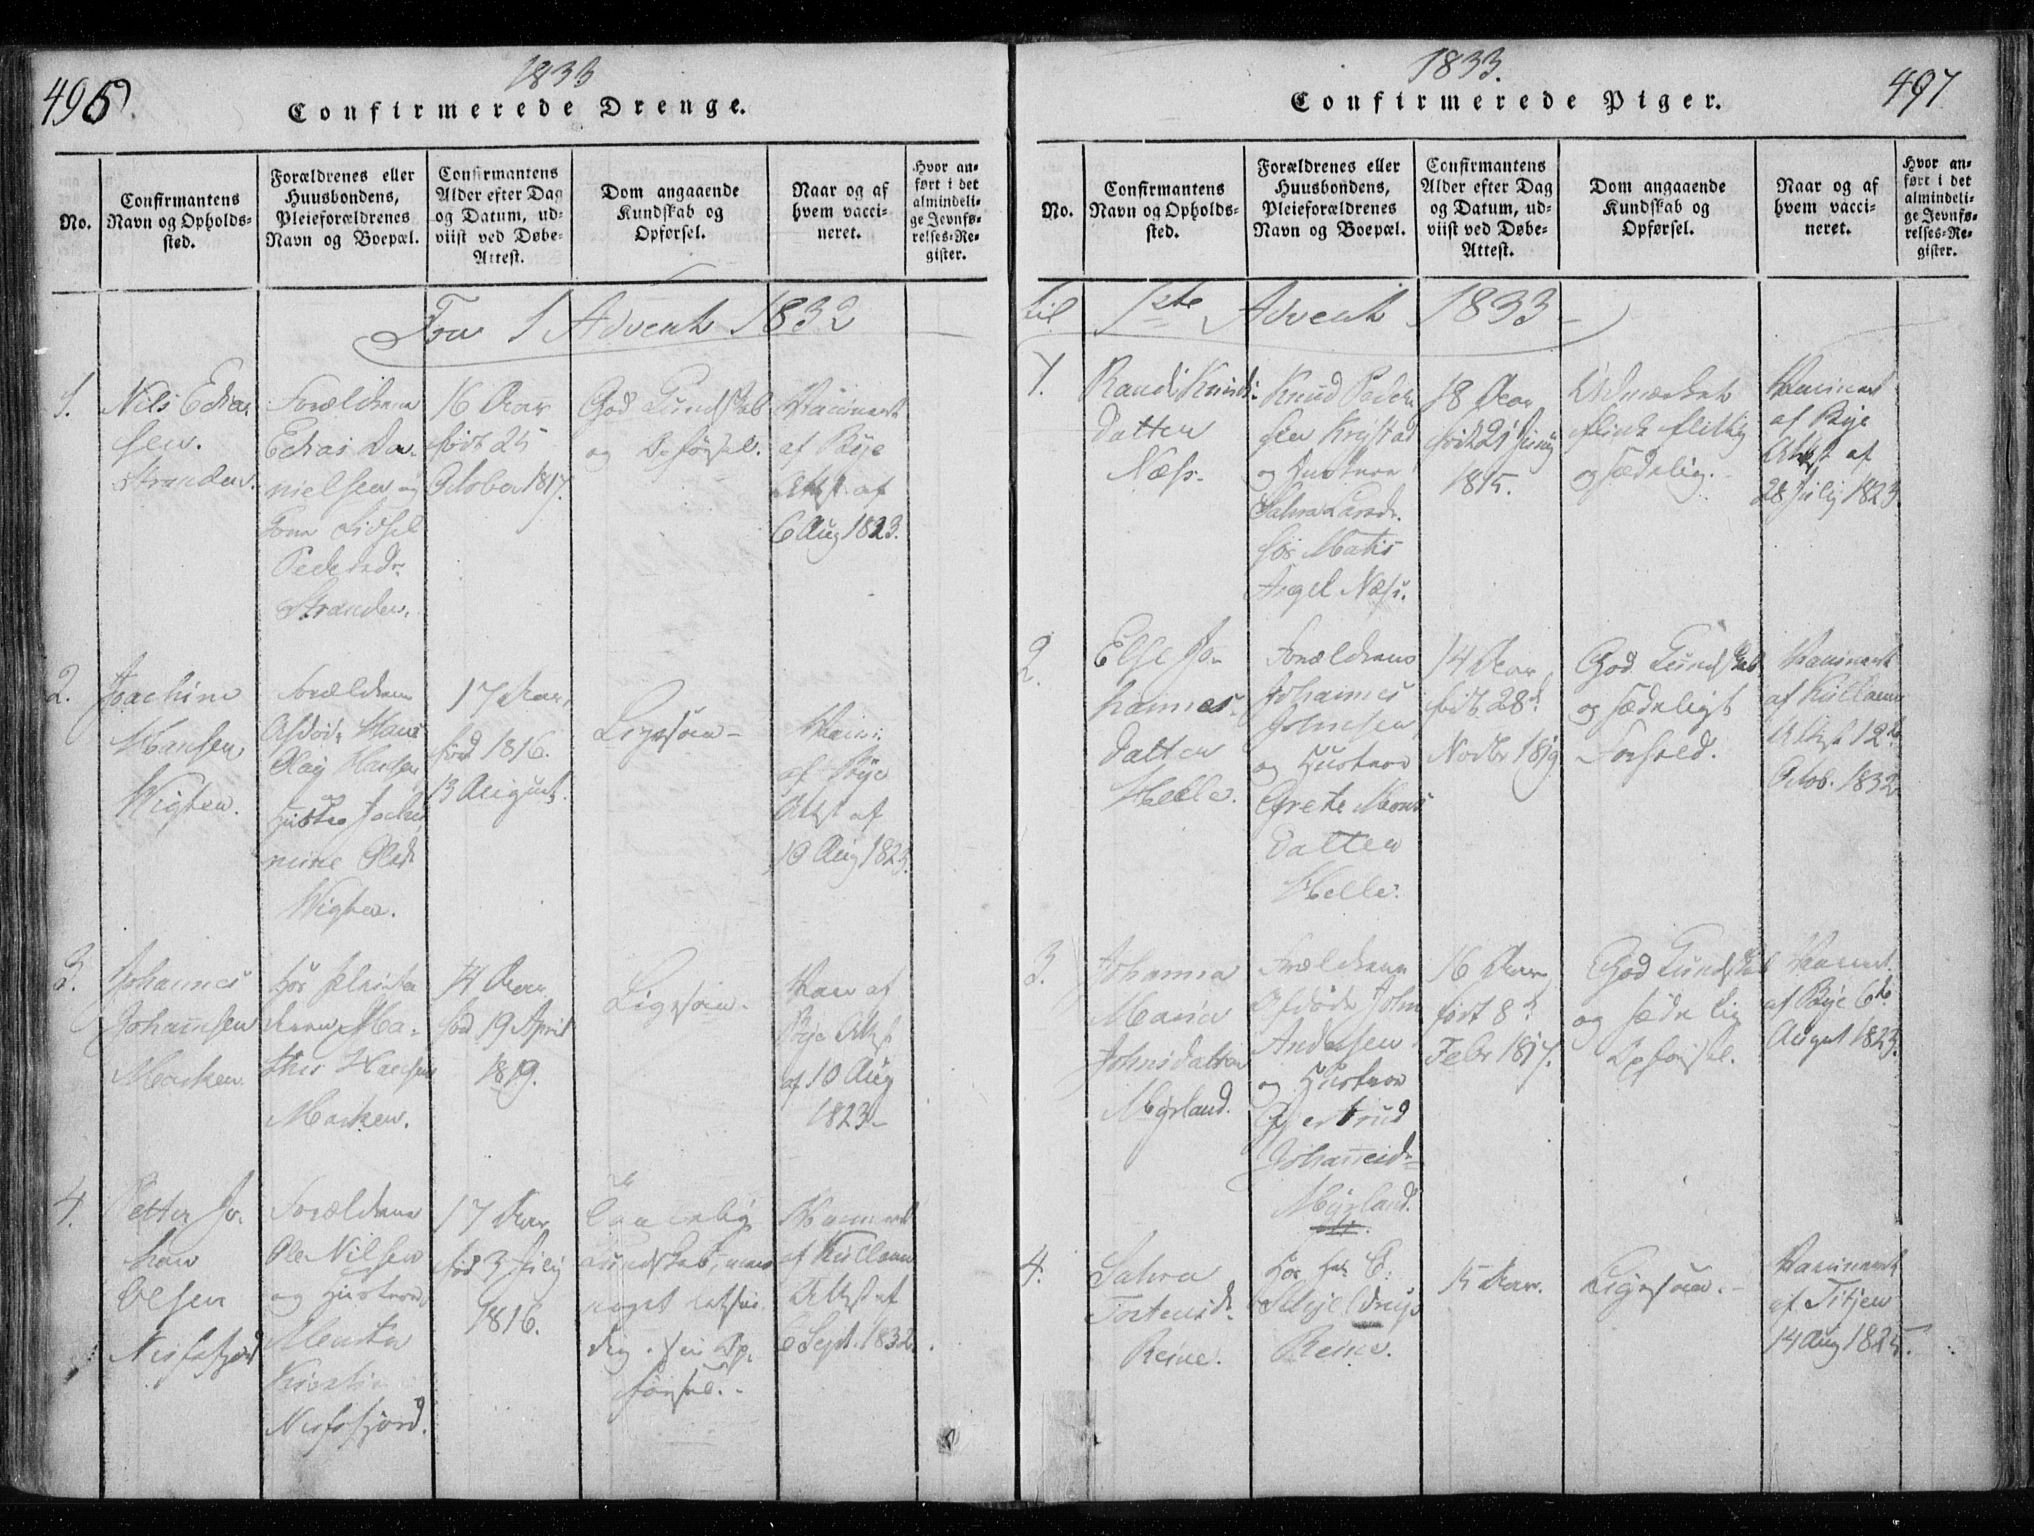 1833
496.
Confirmerede Drenge.
No.
Confirmantens
Navn og Opholds-
sted.
Forældrenes eller
Huusbondens,
Pleieforældrenes
Navn og Boepæl.
Confirmantens
Alder efter Dag
og Datum, ud-
viist ved Døbe-
Attest.
Dom angaaende
Kundskab og
Opførsel.
Naar og af
hvem vacci-
neret.
Hvor an-
ført i det
almindeli-
ge Jevnfø-
relses-Re-
gister.
Fra 1 Advent 1832
1.
Nils Edias
sen.
Stranden.
Forældrene
Edias Da-
nielsen og
Kone Sidsel
Pedersdr
Stranden.
16 Aar
født 25
October 1817.
God Kundskab
og Opførsel.
Vaccineret
af Bye
Attest af
6 Aug 1823.
2.
Joachim
Hansen
Vigten.
Forældrene
Afdøde Hans
Olaij Hansen
og
Hustro Jochi
mine Olsdr
Vigten.
17 Aar
fød 1816.
13 August.
Ligesaa-
Vaccin:
af Bye
Attest af
10 Aug 1823.
3.
Johannes
Johannsen
Marken
Hos Pleiefor
ældrene Ma-
this Hansen
Marken.
14 Aar
fød 19 April
1819.
Ligesaa-
Vacc af
Bye Attest
af 10 Aug
1823-
4.
Petter Jo-
han
Olsen
Nesfafjord
Forældrene
Ole Nilsen
og Hustroe
Kirstin
Nusfsfjord.
17 Aar
fød 3 July
1816.
Taalelig
Kundskab, men
noget letsin
dig i sin Op-
førsel.-
Vaccineret
af Kullman
Attest af
6 Sept. 1832.
1833.
497
Confirmerede Piger.
No.
Confirmantens
Navn og Opholds-
sted.
Forældrenes eller
Huusbondens,
Pleieforældrenes
Navn og Boepæl.
Confirmantens
Alder efter Dag
og Datum, ud-
viist ved Døbe-
Attest.
Dom angaaende
Kundskab og
Opførsel.
Naar og af
hvem vacci-
neret.
Hvor an-
ført i det
almindeli-
ge Jevnfø-
relses-Re-
gister.
til 1ste Advent 1833-
1.
Randi Knuds-
datter
Næss-
Knud Peder-
sen Krystad
og Hustroe
Sahra Larsdr.
hos Mathis
Angel Næss.
18 Aar
født 21 Juny
1815.
Udmærket
flink flittig
og sædelig.
Vaccineret
af Bye
Attest af
28 July 1823
2.
Else Jo-
hannes-
datter
Helle.
Forældrene
Johannes
Johnsen
og Hustroe
Grete Mons
datter
Helle.
14 Aar
født 28d
Novbr 1819.
God Kundskab
og sædeligt
Forhold.
Vaccineret
af Kullmann
Attest 12te
Octob. 1832
3.
Johanna
Maria
Johnsdatter
Myrland.
Forældrene
Afdøde John
Andersen
og Hustroe
Gjertrud
Johannesdr
Myrland.
16 Aar
født 8d
Febr 1817.
God Kundskab
og sædelig
Opførsel.
Vaccineret
af Bye 6te
August 1823.
4.
Sahra
Tostensdr.
Reine.
Hos Hr E:
Schjeldrup
Reine.
15 Aar.
Ligesaa.-
Vaccineret
af Titjen
14 Aug 1825.